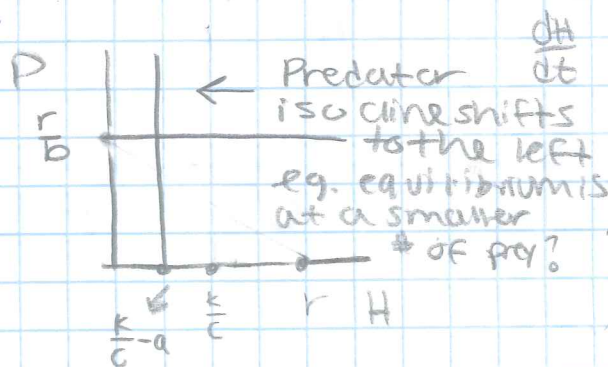 dH/dt
P
← Predator
isocline shifts
r/b
to the left
eg. equilibrium is
at a smaller
# of prey?
k/c - a
k/c
r
H